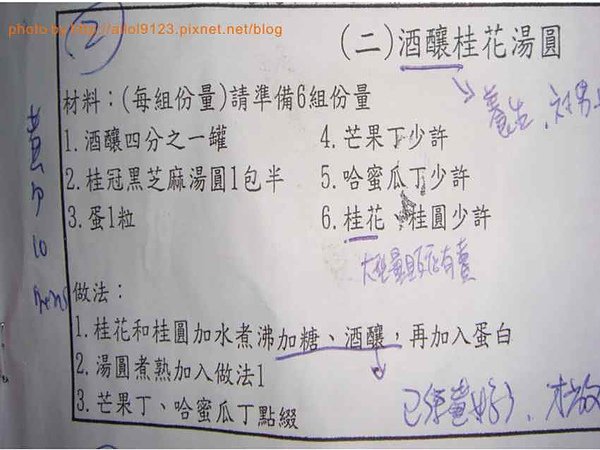 photo by http://allol9123.pixnet.net/blog
(2)
(二)酒釀桂花湯圓
材料：(每組份量)請準備6組份量
養生、對男
1.酒釀四分之一罐
4.芒果丁少許
2.桂冠黑芝麻湯圓1包半
5.哈蜜瓜丁少許
3.蛋1粒
6.桂花、桂圓少許
有賣
做法：
1.桂花和桂圓加水煮沸加糖、酒釀，再加入蛋白
2.湯圓煮熟加入做法1
3.芒果丁、哈蜜瓜丁點綴
已經